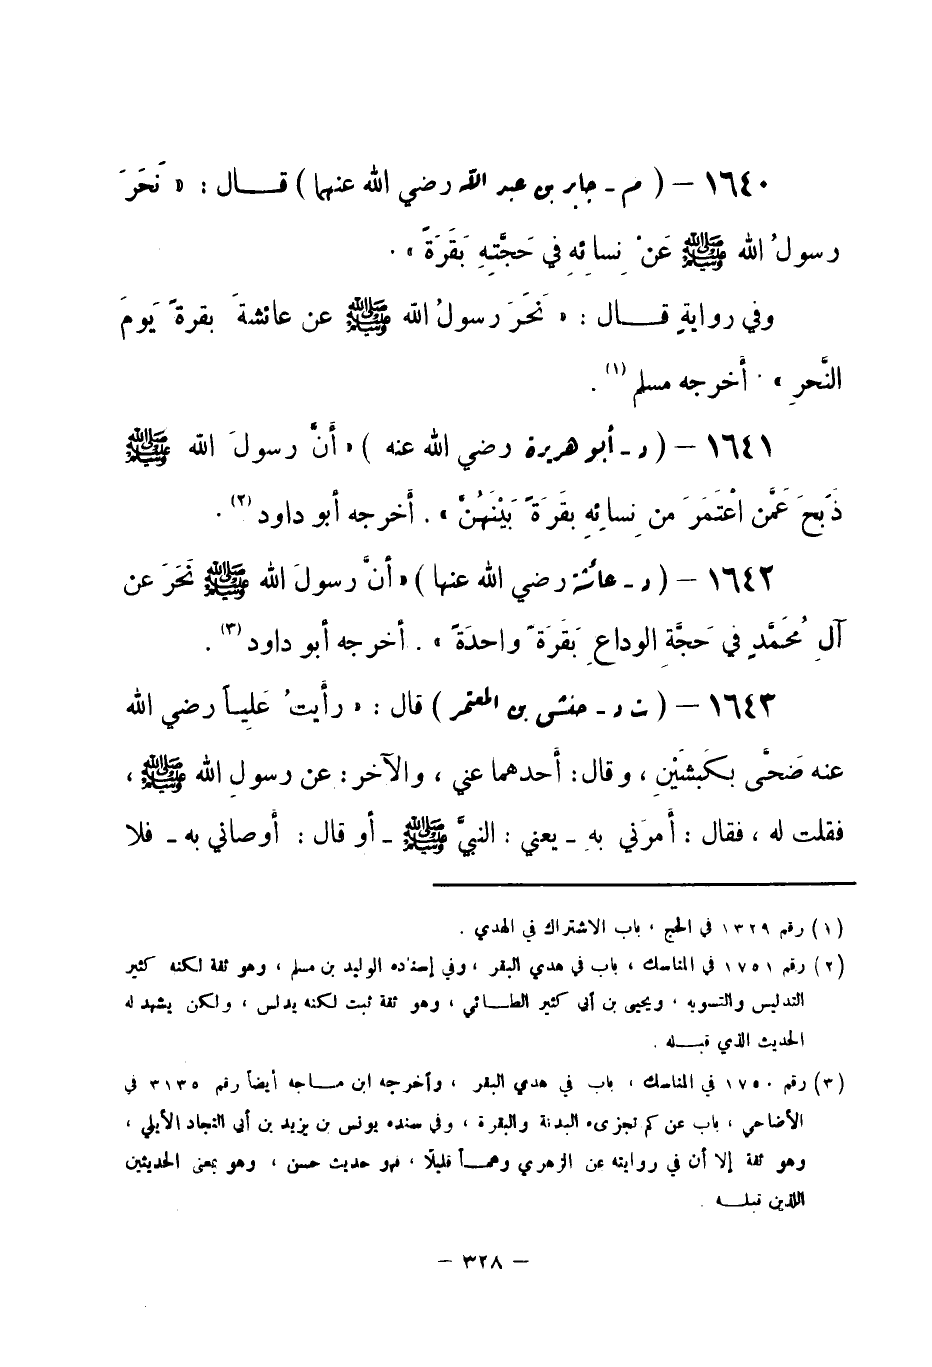 ١٦٤٠ – ( م - جابر بن عبد الله رضي الله عنهما ) قــال : « نَحَرَ
رسولُ الله ﷺ عَنْ نِسائِهِ في حَجَّتِهِ بَقَرَةً » .
وفي روايةٍ قــال : « نَحَرَ رسولُ الله ﷺ عن عائشةَ بقرةً يَومَ
النَّحرِ » . أخرجه مسلم (١) .
١٦٤١ – ( د - أبو هريرة رضي الله عنه ) « أنَّ رسولَ الله ﷺ
ذَبَحَ عَمَّن اعْتَمَرَ من نِسائِهِ بقَرَةً بَيْنَهُنَّ » . أخرجه أبو داود (٢) .
١٦٤٢ – ( د - عائشة رضي الله عنها ) « أنَّ رسولَ الله ﷺ نَحَرَ عن
آلِ مُحَمَّدٍ في حَجَّةِ الوداعِ بَقَرَةً واحدَةً » . أخرجه أبو داود (٣) .
١٦٤٣ – ( ت د - حنش بن المعتمر ) قال : « رأيتُ عَليــاً رضي الله
عنه ضَحَّى بكَبشَيْنِ ، وقال : أحدهما عني ، والآخر : عن رسولِ الله ﷺ ،
فقلت له ، فقال : أمرَني بهِ - يعني : النبيَّ ﷺ - أو قال : أوصاني به - فلا
(١) رقم ١٣٢٩ في الحج ، باب الاشتراك في الهدي .
(٢) رقم ١٧٥١ في المناسك ، باب في هدي البقر ، وفي إسناده الوليد بن مسلم ، وهو ثقة لكنه كثير
التدليس والتسوية ، ويحيى بن أبي كثير الطــائي ، وهو ثقة ثبت لكنه يدلس ، ولكن يشهد له
الحديث الذي قبــله .
(٣) رقم ١٧٥٠ في المناسك ، باب في هدي البقر ، وأخرجه ابن مــاجه أيضاً رقم ٣١٣٥ في
الأضاحي ، باب عن كم تجزىء البدنة والبقرة ، وفي سنده يونس بن يزيد بن أبي النجاد الأيلي ،
وهو ثقة إلا أن في روايته عن الزهري وهمــاً قليلًا ، فهو حديث حسن ، وهو بمعنى الحديثين
اللذين قبــله .
– ٣٢٨ –